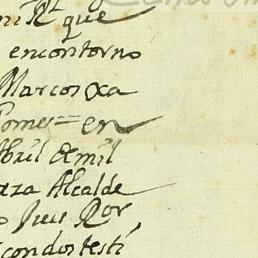 que
encontorno
Marcos oxa
Gomes = en
Abril de mil
aza Alcalde
Juez Ror
condos testi